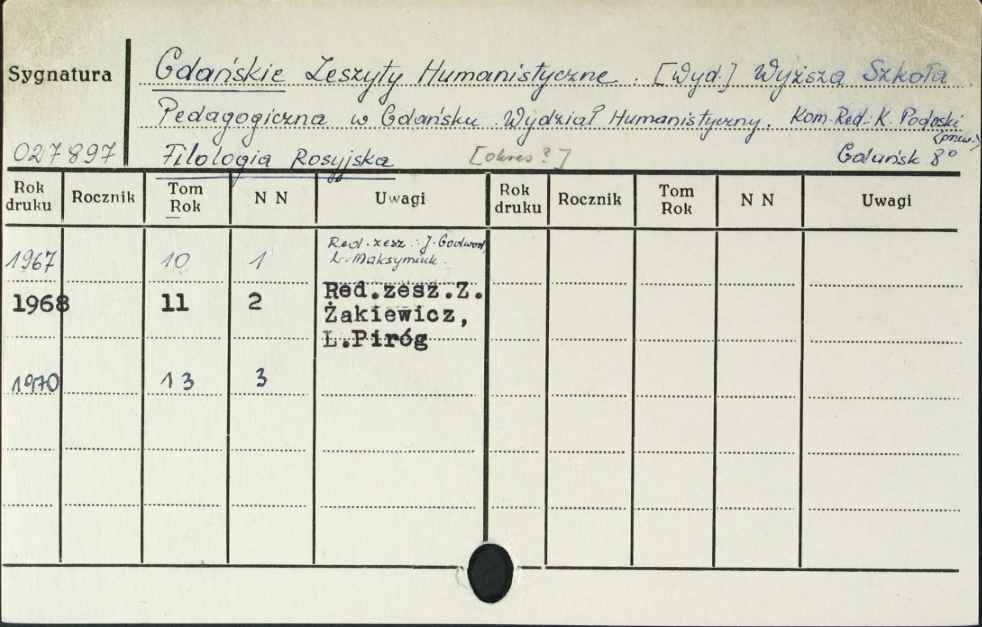 Sygnatura
Gdańskie Zeszyty Humanistyczne. [Wyd.] Wyższa Szkoła
Pedagogiczna w Gdańsku. Wydział Humanistyczny. Kom. Red. K. Podoski
(przew.)
027897 Filologia Rosyjska [okres?] Gdańsk 8°
Rok druku Rocznik Tom Rok N N Uwagi Rok druku Rocznik Tom Rok N N Uwagi
1967 10 1 Red. zesz.: J. Godwod,
L. Maksymiuk.
1968 11 2 Red.zesz.Z.
Żakiewicz,
L.Piróg
1970 13 3